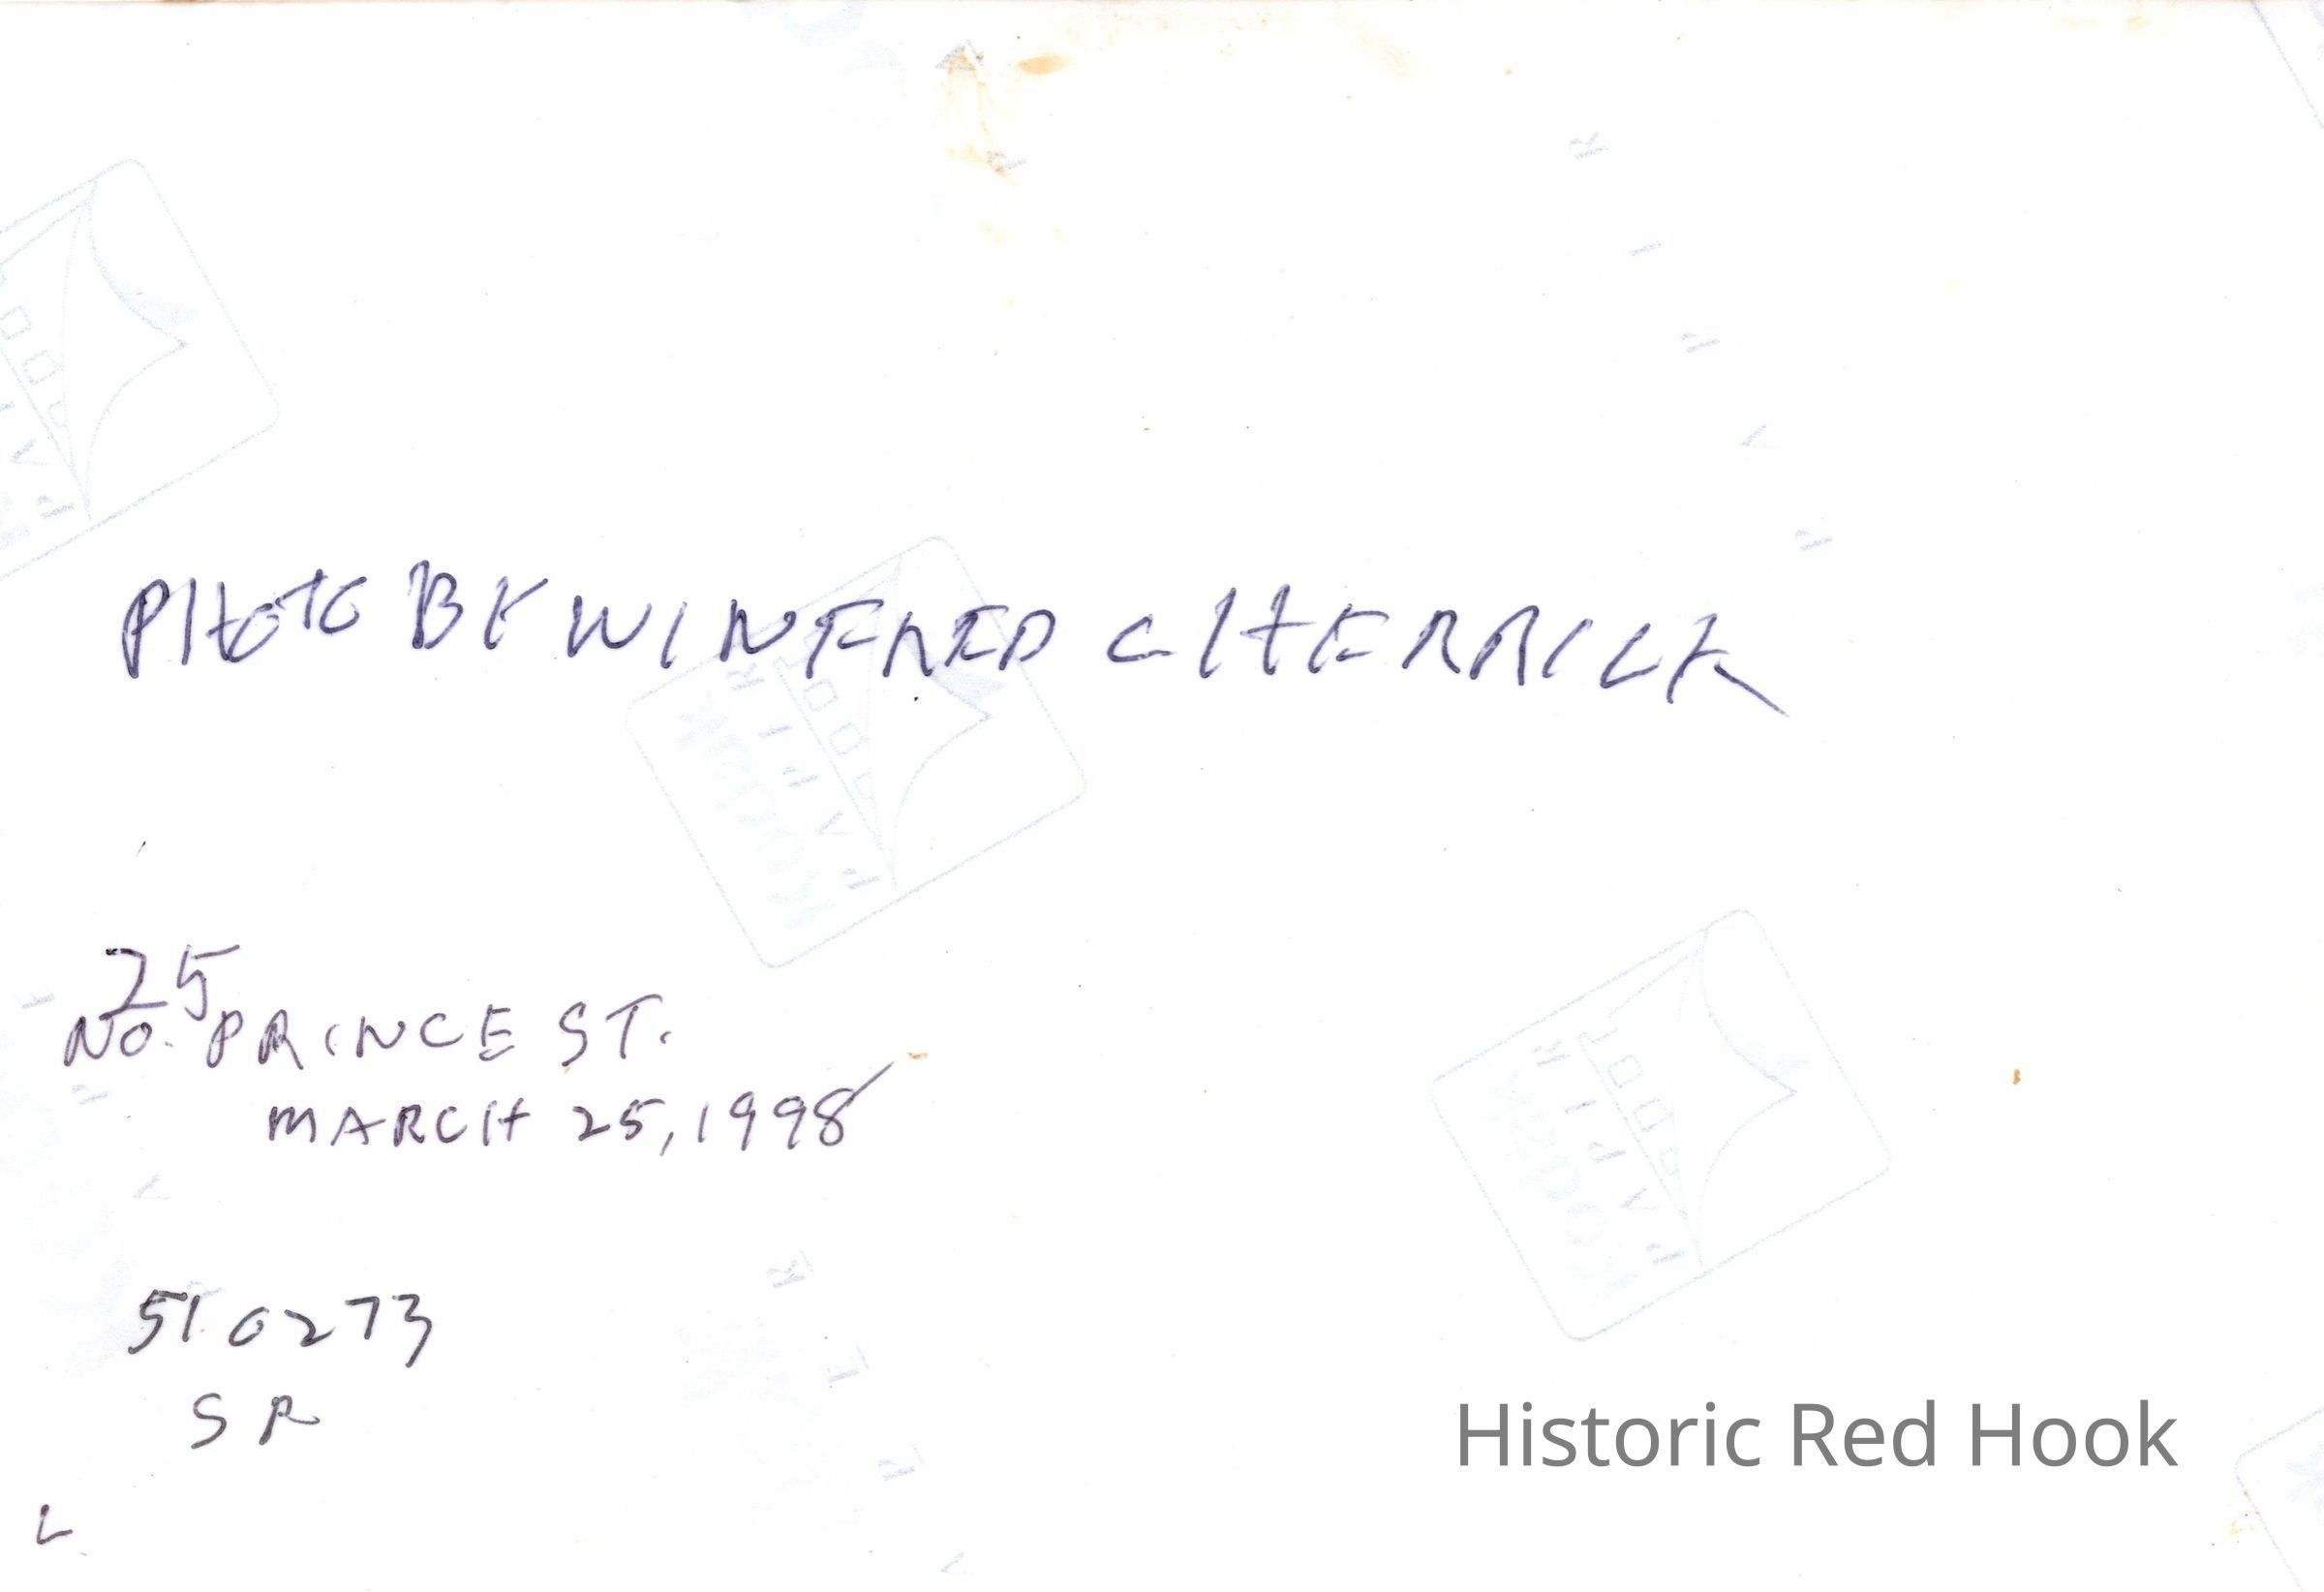 PHOTO BY WINFRED CHERRICK
25
NO. PRINCE ST.
MARCH 25, 1998
510273
SR
L
Historic Red Hook